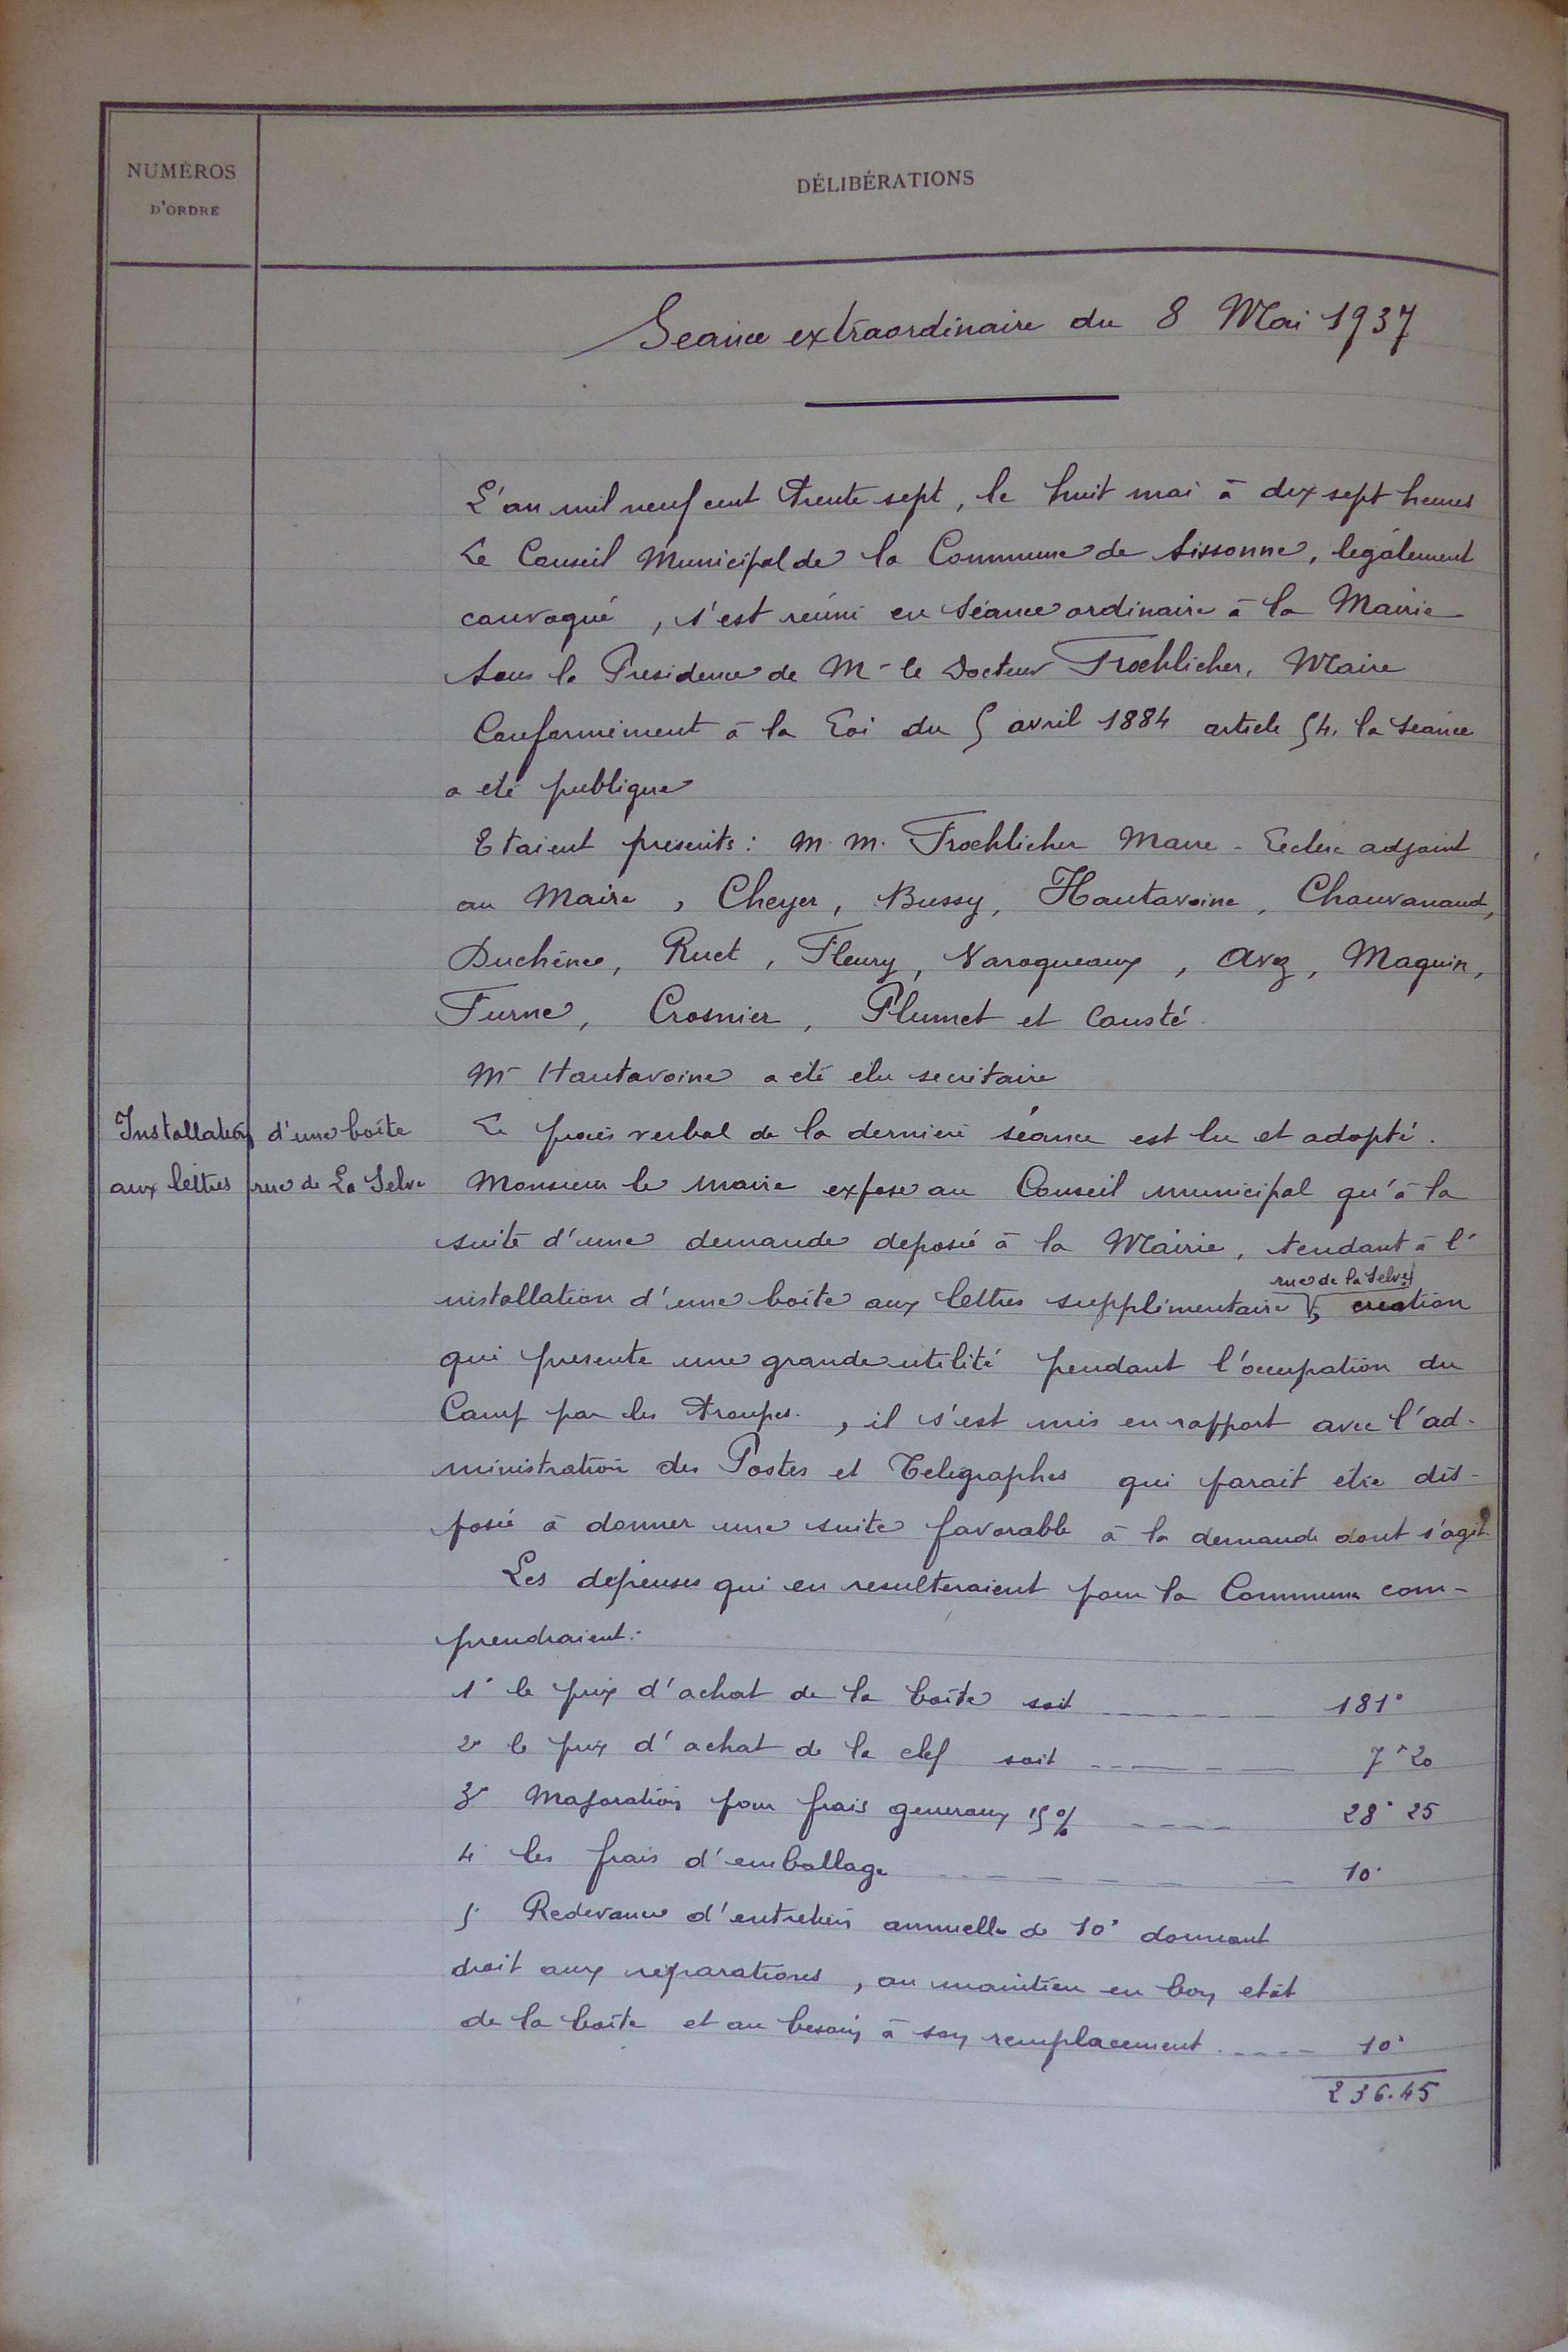 NUMÉROS
D'ORDRE
DÉLIBÉRATIONS
Seance extraordinaire du 8 Mai 1937
L'an mil neuf cent trente sept, le huit mai à dix sept heures
Le Conseil Municipal de la Commune de Sissonne, légalement
convoqué, s'est réuni en Séance ordinaire à la Mairie
sous la Présidence de Mr le Docteur Froehlicher, Maire
Conformément à la Loi du 5 avril 1884 article 54, la Séance
a été publique
Etaient présents : M. M. Froehlicher Maire - Leclerc adjoint
au Maire, Cheyer, Bussy, Hautavoine, Chauvanaud,
Duchêne, Ruet, Fleury, Naroqueaux, Avez, Maquin,
Furne, Crosnier, Plumet et Cousté.
Mr Hautavoine a été élu secrétaire
Installation d'une boîte
aux lettres rue de La Selve
Le procès verbal de la derniere séance est lu et adopté.
Monsieur le Maire expose au Conseil municipal qu'à la
suite d'une demande déposée à la Mairie, tendant à l'
rue de la Selve
installation d'une boîte aux lettres supplémentaire, création
qui présente une grande utilité pendant l'occupation du
Camp par les troupes, il s'est mis en rapport avec l'ad-
ministration des Postes et Télégraphes qui parait être dis-
posée à donner une suite favorable à la demande dont s'agit
Les dépenses qui en resulteraient pour la Commune com-
prendraient :
1° le prix d'achat de la boîte soit 181"
2° le prix d'achat de la clef soit 7" 20
3° Majoration pour frais generaux 15% 28" 25
4 les frais d'emballage 10"
5° Redevance d'entretien annuelle de 10" donnant
droit aux réparations, au maintien en bon état
de la boîte et au besoin à son remplacement 10"
236.45